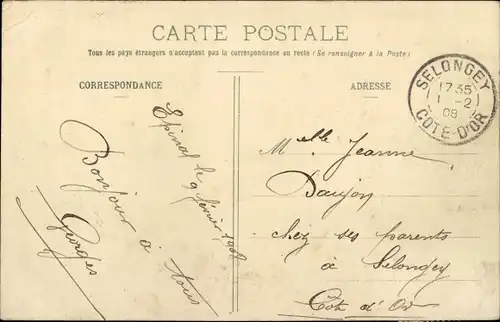 CARTE POSTALE
Tous les pays étrangers n'acceptent pas la correspondance au recto (Se renseigner à la Poste)
CORRESPONDANCE
ADRESSE
SELONGEY
17 35
1 -2
08
COTE-D'OR
Epinal le 9 février 1908
Bonjour à tous
Georges
Melle Jeanne
Daujon
chez ses parents
à Selongey
Côte d'Or